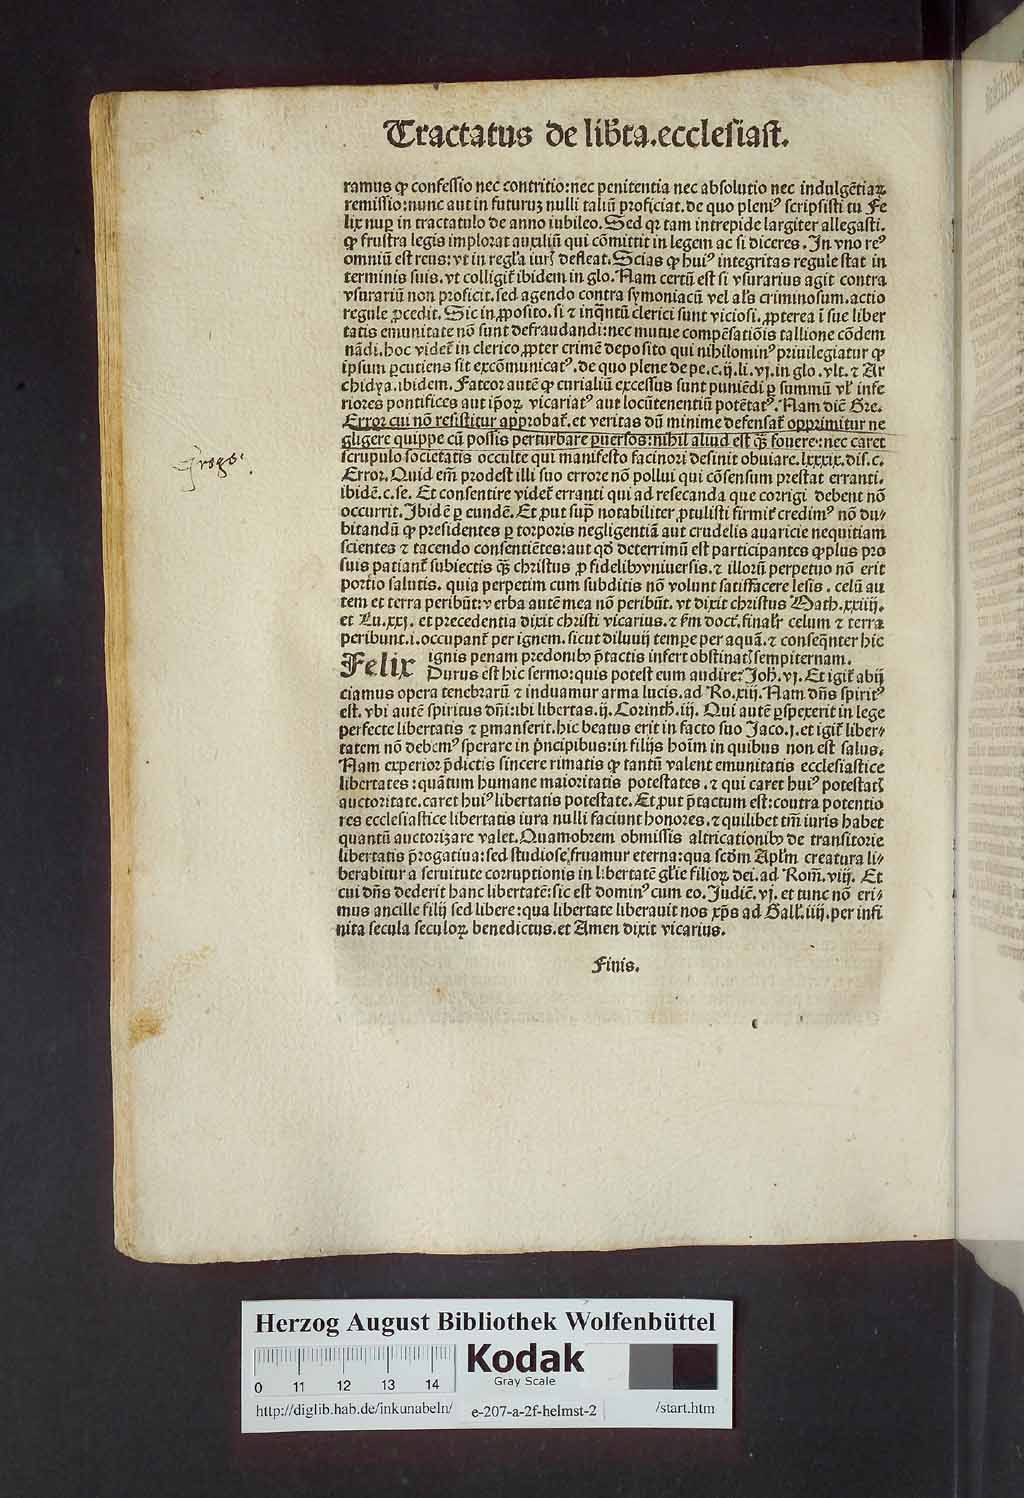 Tractatus de lib̃ta.ecclesiast.
ramus ꝙ confessio nec contritio:nec penitentia nec absolutio nec indulgẽtiaꝝ
remissio:nunc aut in futuruꝫ nulli taliũ proficiat.de quo pleniꝰ scripsisti tu Fe
lix nuꝑ in tractatulo de anno iubileo.Sed qꝛ tam intrepide largiter allegasti.
ꝙ frustra legis implorat auxiliũ qui cõmittit in legem ac si diceres.In vno reꝰ
omniũ est reus:vt in regl̃a iurꝭ defleat.Scias ꝙ huiꝰ integritas regule stat in
terminis suis.vt colligit᷑ ibidem in glo.Nam certũ est si vsurarius agit contra
vsurariũ non proficit.sed agendo contra symoniacũ vel al̃s criminosum.actio
regule ꝓcedit.Sic in ꝓposito.si ⁊ inq̃ntũ clerici sunt viciosi.ꝓpterea ĩ sue liber
tatis emunitate nõ sunt defraudandi:nec mutue compẽsatiõis tallione cõdem
nãdi.hoc videt᷑ in clerico ꝓpter crimẽ deposito qui nihilominꝰ priuilegiatur ꝙ
ipsum ꝑcutiens sit excõmunicatꝰ.de quo plene de pe.c.ij.li.vj.in glo.vlt.⁊ Ar
chidya.ibidem.Fateor autẽ ꝙ curialiũ excessus sunt puniẽdi ꝑ summũ vl̃ infe
riores pontifices aut ip̃oꝝ vicariatꝰ aut locũtenentiũ potẽtatꝰ.Nam diẽ Gre.
Error cui nõ resistitur approbat᷑.et veritas dũ minime defensat᷑ opprimitur ne
gligere quippe cũ possis perturbare ꝑuersos:nihil aliud est q̃ꝫ fouere:nec caret
Grego.
scrupulo societatis occulte qui manifesto facinori desinit obuiare.lxxxix.dis.c.
Error.Quid em̃ prodest illi suo errore nõ pollui qui cõsensum prestat erranti.
ibidẽ.c.se. Et consentire videt᷑ erranti qui ad resecanda que corrigi debent nõ
occurrit.Ibidẽ ꝑ eundẽ.Et ꝓut sup̃ notabiliter ꝓtulisti firmit᷑ credimꝰ nõ du⸗
bitandũ ꝙ presidentes ꝑ torporis negligentiã aut crudelis auaricie nequitiam
scientes ⁊ tacendo consentiẽtes:aut qd̃ deterrimũ est participantes ꝙplus pro
suis patiant᷑ subiectis q̃ꝫ christus ꝓ fidelibꝰ vniuersis.⁊ illorũ perpetuo nõ erit
portio salutis. quia perpetim cum subditis nõ volunt satisfacere lesis. celũ au
tem et terra peribũt:verba autẽ mea nõ peribũt.vt dixit christus Math.xxiiij.
et Lu.xxj. et precedentia dixit christi vicarius.⁊ fm̃ doct᷑.finalr̃ celum ⁊ terra
peribunt.i.occupant᷑ per ignem.sicut diluuij tempe per aquã.⁊ conseq̃nter hic
ignis penam predonibꝰ p̃tactis infert obstinatꝭ sempiternam.
Felix Durus est hic sermo:quis potest eum audire?Joh̃.vj.Et igit᷑ abij
ciamus opera tenebrarũ ⁊ induamur arma lucis.ad Ro.xiij.Nam dñs spiritꝰ
est.vbi autẽ spiritus dñi:ibi libertas.ij.Corinth̃.iij.Qui autẽ ꝑspexerit in lege
perfecte libertatis ⁊ ꝑmanserit.hic beatus erit in facto suo Jaco.j.et igit᷑ liber⸗
tatem nõ debemꝰ sperare in p̃ncipibus:in filijs hoĩm in quibus non est salus.
Nam experior p̃dictis sincere rimatis ꝙ tantũ valent emunitatis ecclesiastice
libertates:quãtum humane maioritatis potestates.⁊ qui caret huiꝰ potestatꝭ
auctoritate.caret huiꝰ libertatis potestate.Et ꝓut p̃tactum est:contra potentio
res ecclesiastice libertatis iura nulli faciunt honores.⁊ quilibet tm̃ iuris habet
quantũ auctorizare valet.Quamobrem obmissis altricationibꝰ de transitorie
libertatis p̃rogatiua:sed studiose fruamur eterna:qua scd̃m Apl̃m creatura li⸗
berabitur a seruitute corruptionis in libertatẽ gl̃ie filioꝝ dei.ad Rom̃.viij. Et
cui dñs dederit hanc libertatẽ:sic est dominꝰ cum eo.Judiẽ.vj.et tunc nõ eri⸗
mus ancille filij sed libere:qua libertate liberauit nos xp̃s ad Gall᷑.iiij.per infi
nita secula seculoꝝ benedictus.et Amen dixit vicarius.
Finis.
Herzog August Bibliothek Wolfenbüttel
Kodak
Gray Scale
0 11 12 13 14
http://diglib.hab.de/inkunabeln/ e-207-a-2f-helmst-2 /start.htm